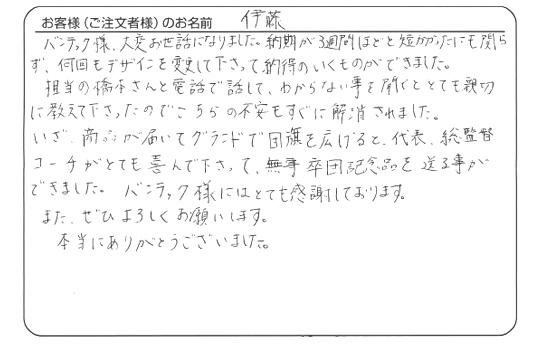 お客様(ご注文者様)のお名前 伊藤
バンラック様、大変お世話になりました。納期が3週間ほどと短かかったにも関ら
ず、何回もデザインを変更して下さって納得のいくものができました。
担当の橋本さんと電話で話して、わからない事を聞くととても親切
に教えて下さったのでこちらの不安もすぐに解消されました。
いざ、商品が届いてグランドで団旗を広げると、代表、総監督
コーチがとても喜んで下さって、無事卒団記念品を送る事が
できました。バンラック様にはとても感謝しております。
また、ぜひよろしくお願いします。
本当にありがとうございました。